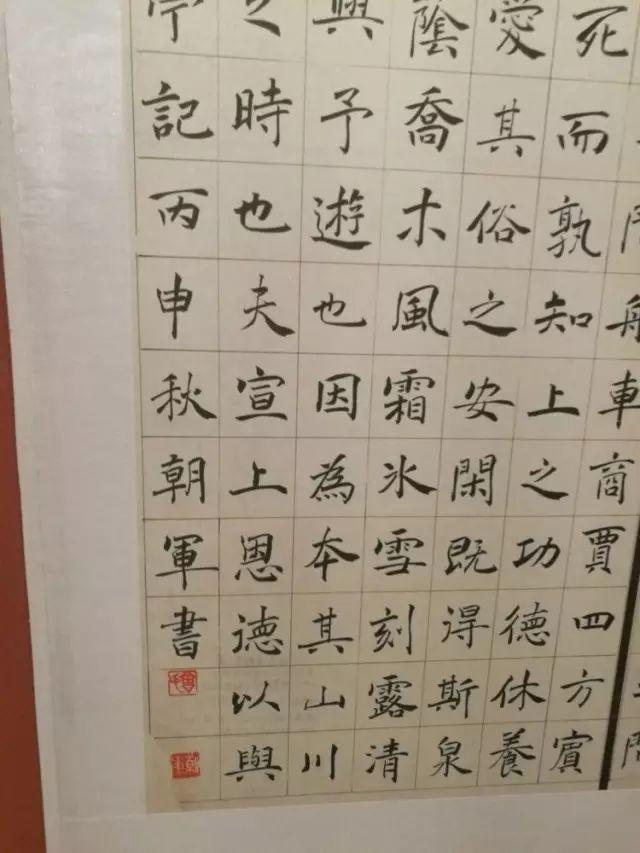 車商賈四方賓
死而孰知上之功德休養
愛其俗之安閑既得斯泉
蔭喬木風霜冰雪刻露清
與予遊也因為本其山川
之時也夫宣上恩德以與
亭記丙申秋朝軍書